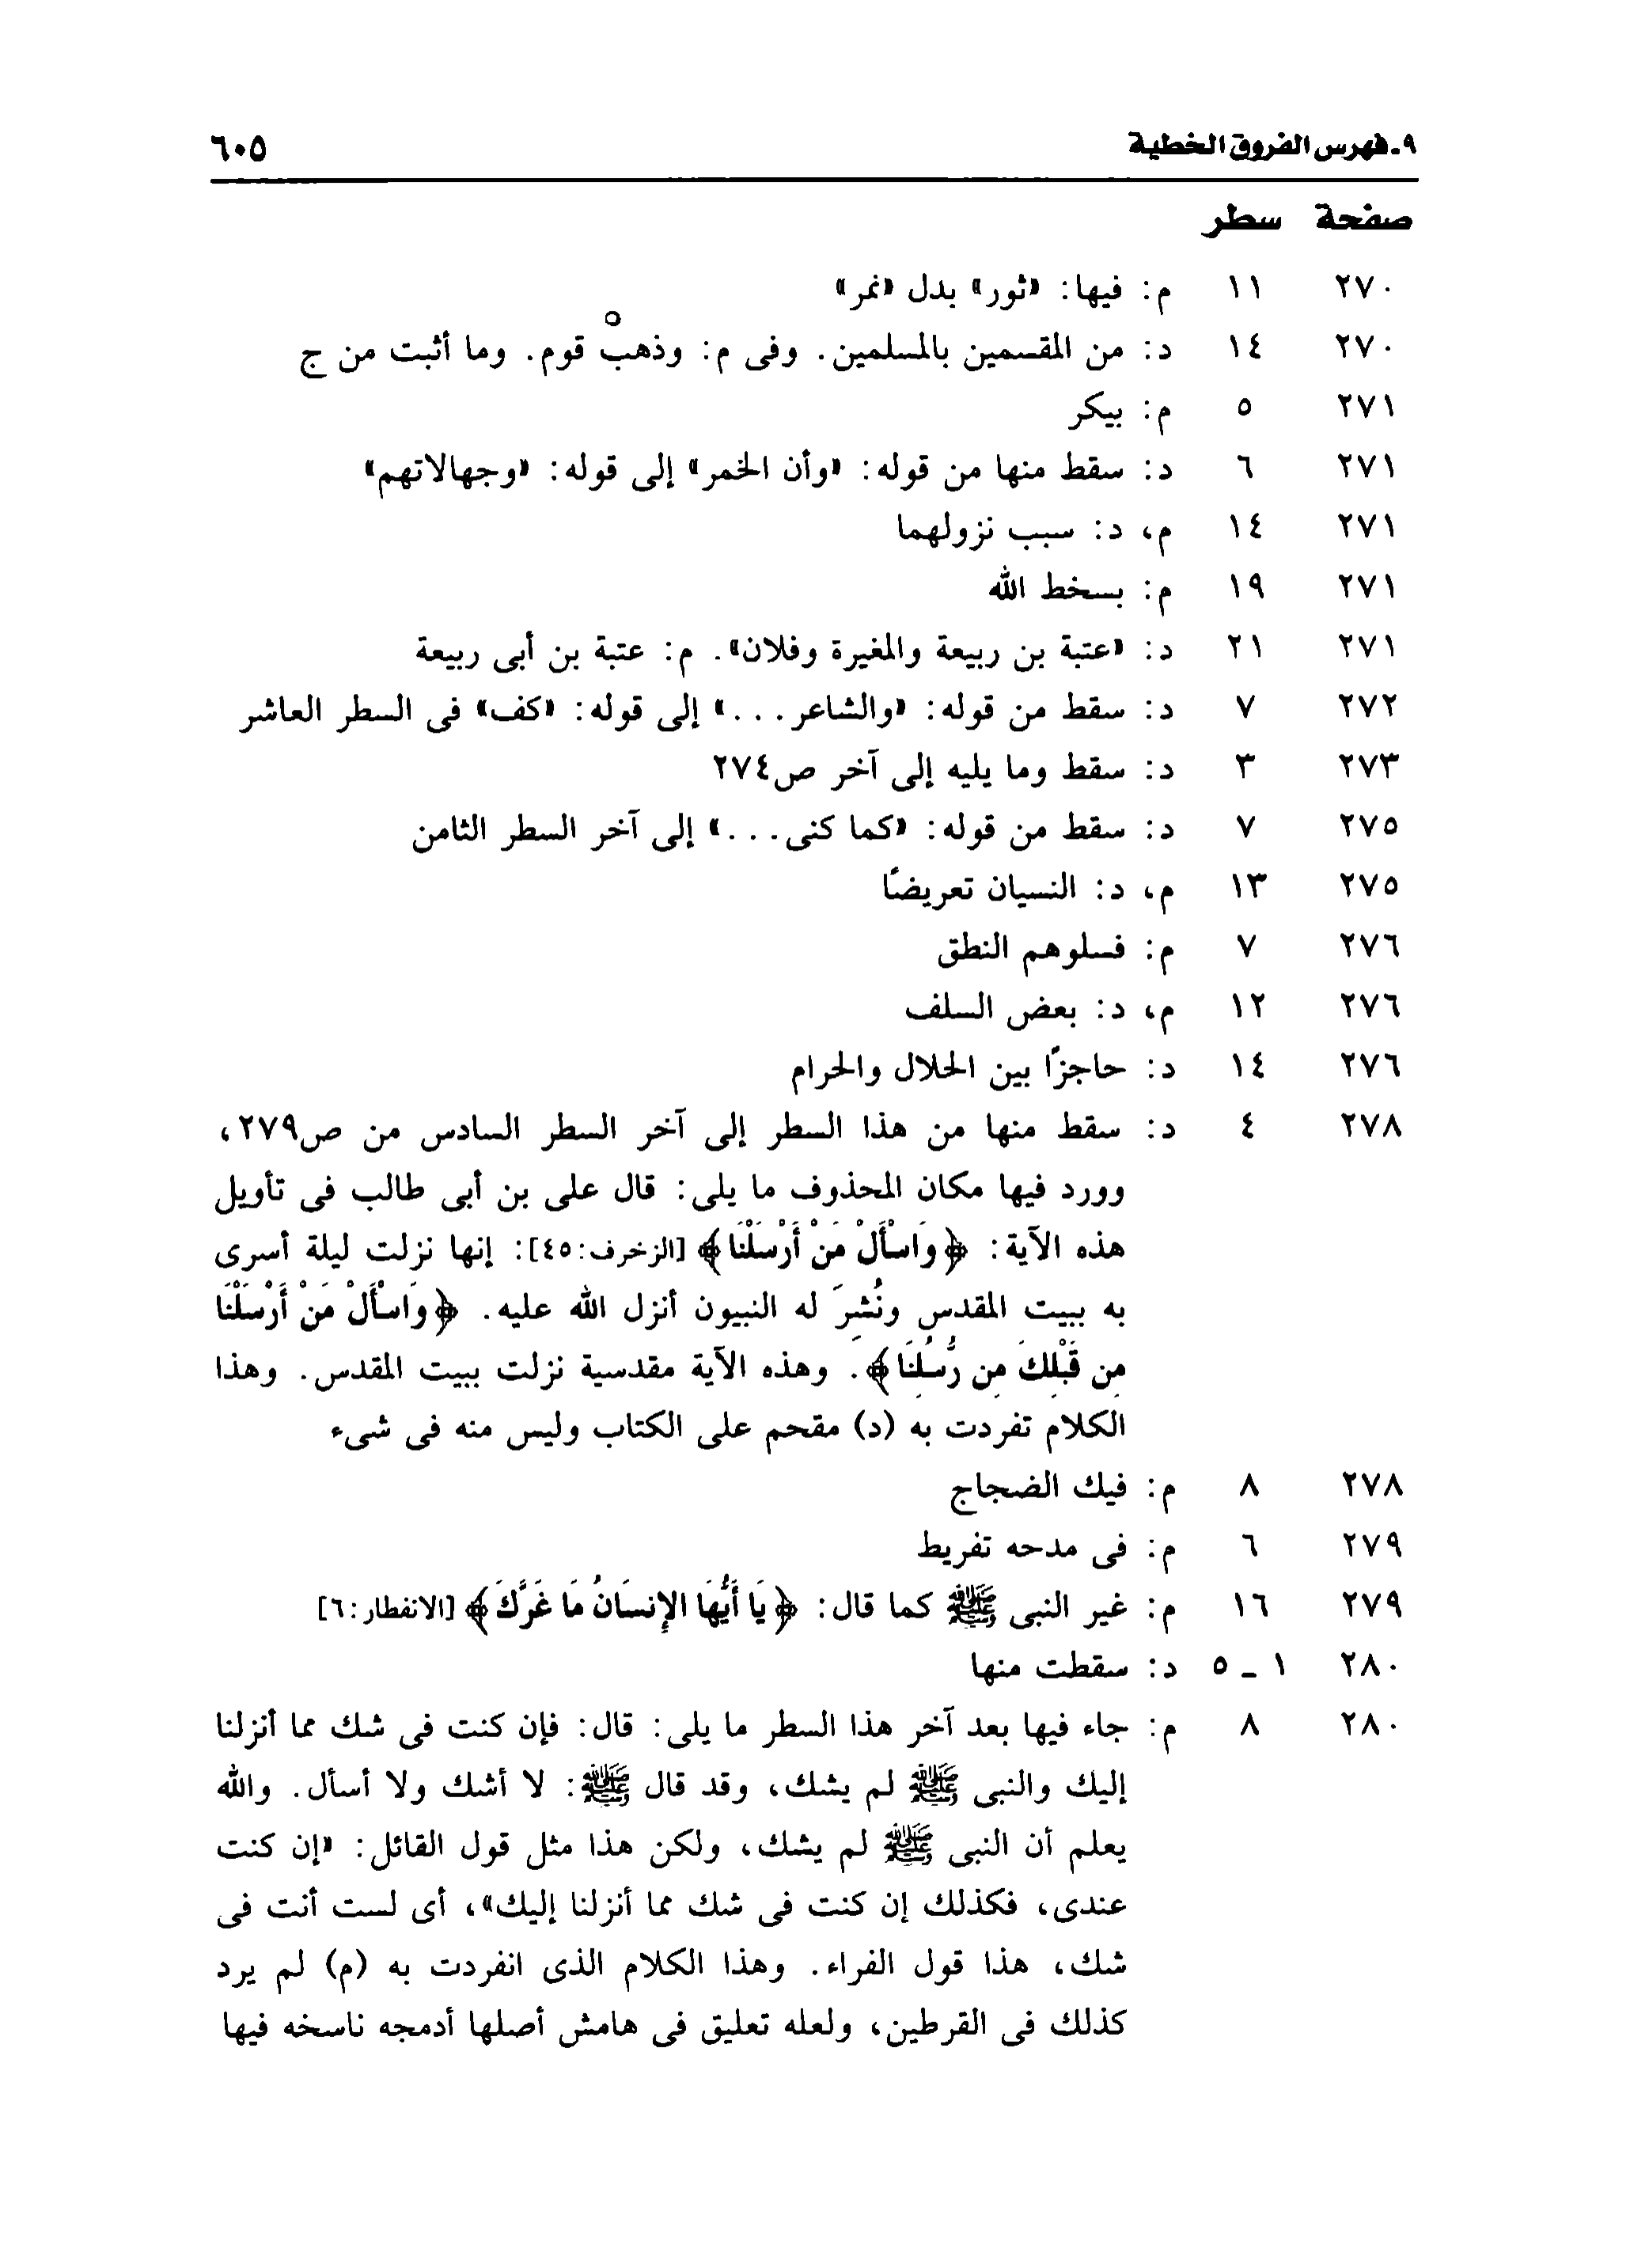 ٩- فهرس الفروق الخطية ٦٠٥
صفحة سطر
٢٧٠ ١١ م: فيها: «ثور» بدل «نمر»
٢٧٠ ١٤ د: من المقسمين بالمسلمين. وفى م: وذهبْ قوم. وما أثبت من ج
٢٧١ ٥ م: بيكر
٢٧١ ٦ د: سقط منها من قوله: «وأن الخمر» إلى قوله: «وجهالاتهم»
٢٧١ ١٤ م، د: سبب نزولهما
٢٧١ ١٩ م: بسخط الله
٢٧١ ٢١ د: «عتبة بن ربيعة والمغيرة وفلان». م: عتبة بن أبى ربيعة
٢٧٢ ٧ د: سقط من قوله: «والشاعر...» إلى قوله: «كف» فى السطر العاشر
٢٧٣ ٣ د: سقط وما يليه إلى آخر ص٢٧٤
٢٧٥ ٧ د: سقط من قوله: «كما كنى...» إلى آخر السطر الثامن
٢٧٥ ١٣ م، د: النسيان تعريضًا
٢٧٦ ٧ م: فسلوهم النطق
٢٧٦ ١٢ م، د: بعض السلف
٢٧٦ ١٤ د: حاجزًا بين الحلال والحرام
٢٧٨ ٤ د: سقط منها من هذا السطر إلى آخر السطر السادس من ص٢٧٩،
وورد فيها مكان المحذوف ما يلى: قال على بن أبى طالب فى تأويل
هذه الآية: ﴿وَاسْأَلْ مَنْ أَرْسَلْنَا﴾ [الزخرف:٤٥]: إنها نزلت ليلة أسرى
به ببيت المقدس ونُشِرَ له النبيون أنزل الله عليه. ﴿وَاسْأَلْ مَنْ أَرْسَلْنَا
مِن قَبْلِكَ مِن رُّسُلِنَا﴾. وهذه الآية مقدسية نزلت ببيت المقدس. وهذا
الكلام تفردت به (د) مقحم على الكتاب وليس منه فى شىء
٢٧٨ ٨ م: فيك الضجاج
٢٧٩ ٦ م: فى مدحه تفريط
٢٧٩ ١٦ م: غير النبى ﷺ كما قال: ﴿يَا أَيُّهَا الإِنسَانُ مَا غَرَّكَ﴾ [الانفطار:٦]
٢٨٠ ١ - ٥ د: سقطت منها
٢٨٠ ٨ م: جاء فيها بعد آخر هذا السطر ما يلى: قال: فإن كنت فى شك مما أنزلنا
إليك والنبى ﷺ لم يشك، وقد قال ﷺ: لا أشك ولا أسأل. والله
يعلم أن النبى ﷺ لم يشك، ولكن هذا مثل قول القائل: «إن كنت
عندى، فكذلك إن كنت فى شك مما أنزلنا إليك»، أى لست أنت فى
شك، هذا قول الفراء. وهذا الكلام الذى انفردت به (م) لم يرد
كذلك فى القرطين، ولعله تعليق فى هامش أصلها أدمجه ناسخه فيها